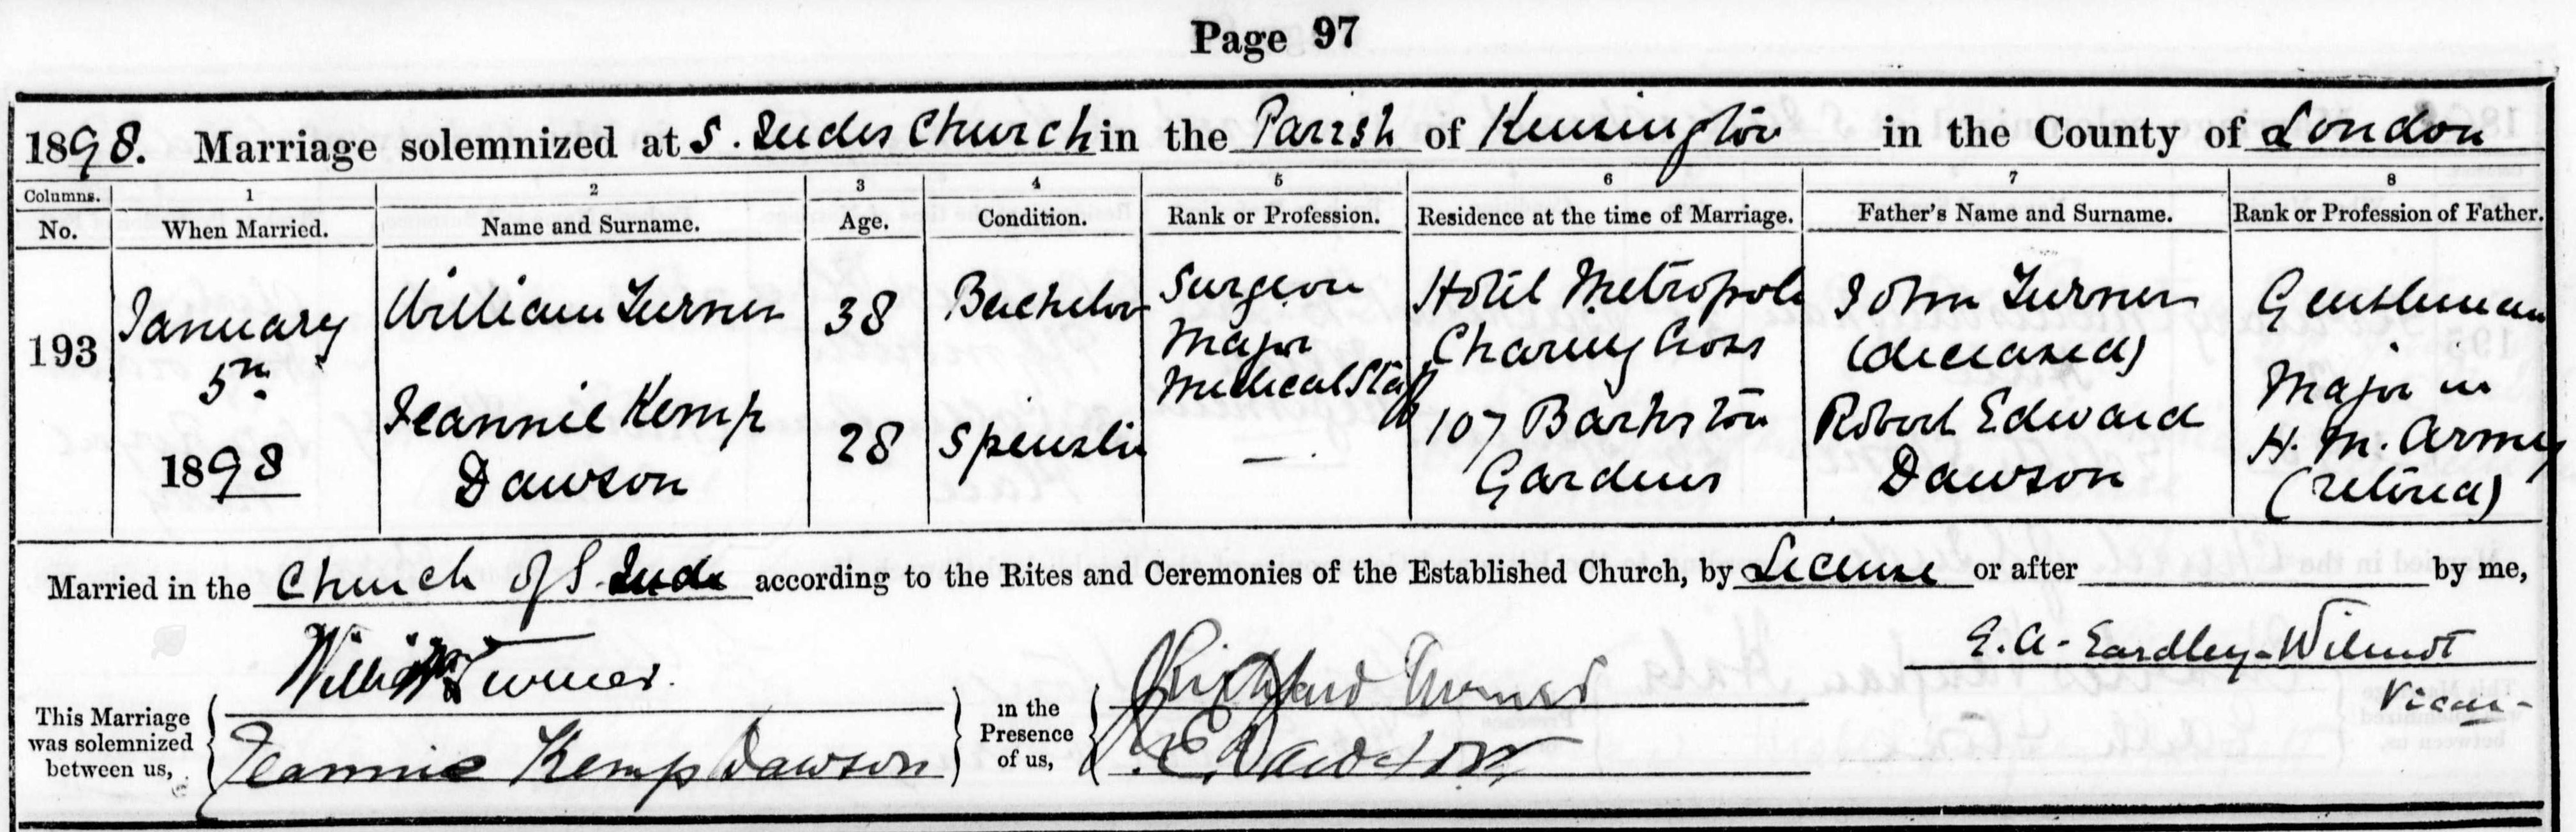 Page 97
1898. Marriage solemnized at S. Judes Church in the Parish of Kensington in the County of London
Columns. 1 2 3 4 5 6 7 8
No. When Married. Name and Surname. Age. Condition. Rank or Profession. Residence at the time of Marriage. Father's Name and Surname. Rank or Profession of Father.
193
January
5th
1898
William Turner
38
Bachelor
Surgeon
Major
Medical Staff
Hotel Metropole
Charing Cross
John Turner
(deceased)
Gentleman
Jeannie Kemp
Dawson
28
Spinster
—
107 Barkston
Gardens
Robert Edward
Dawson
Major in
H. M. Army
(retired)
Married in the Church of S. Jude according to the Rites and Ceremonies of the Established Church, by License or after by me,
This Marriage
was solemnized
between us,
William Turner.
Jeannie Kemp Dawson
in the
Presence
of us,
Turner
R. E. Dawson
E. A. Eardley-Wilmot
Vicar-